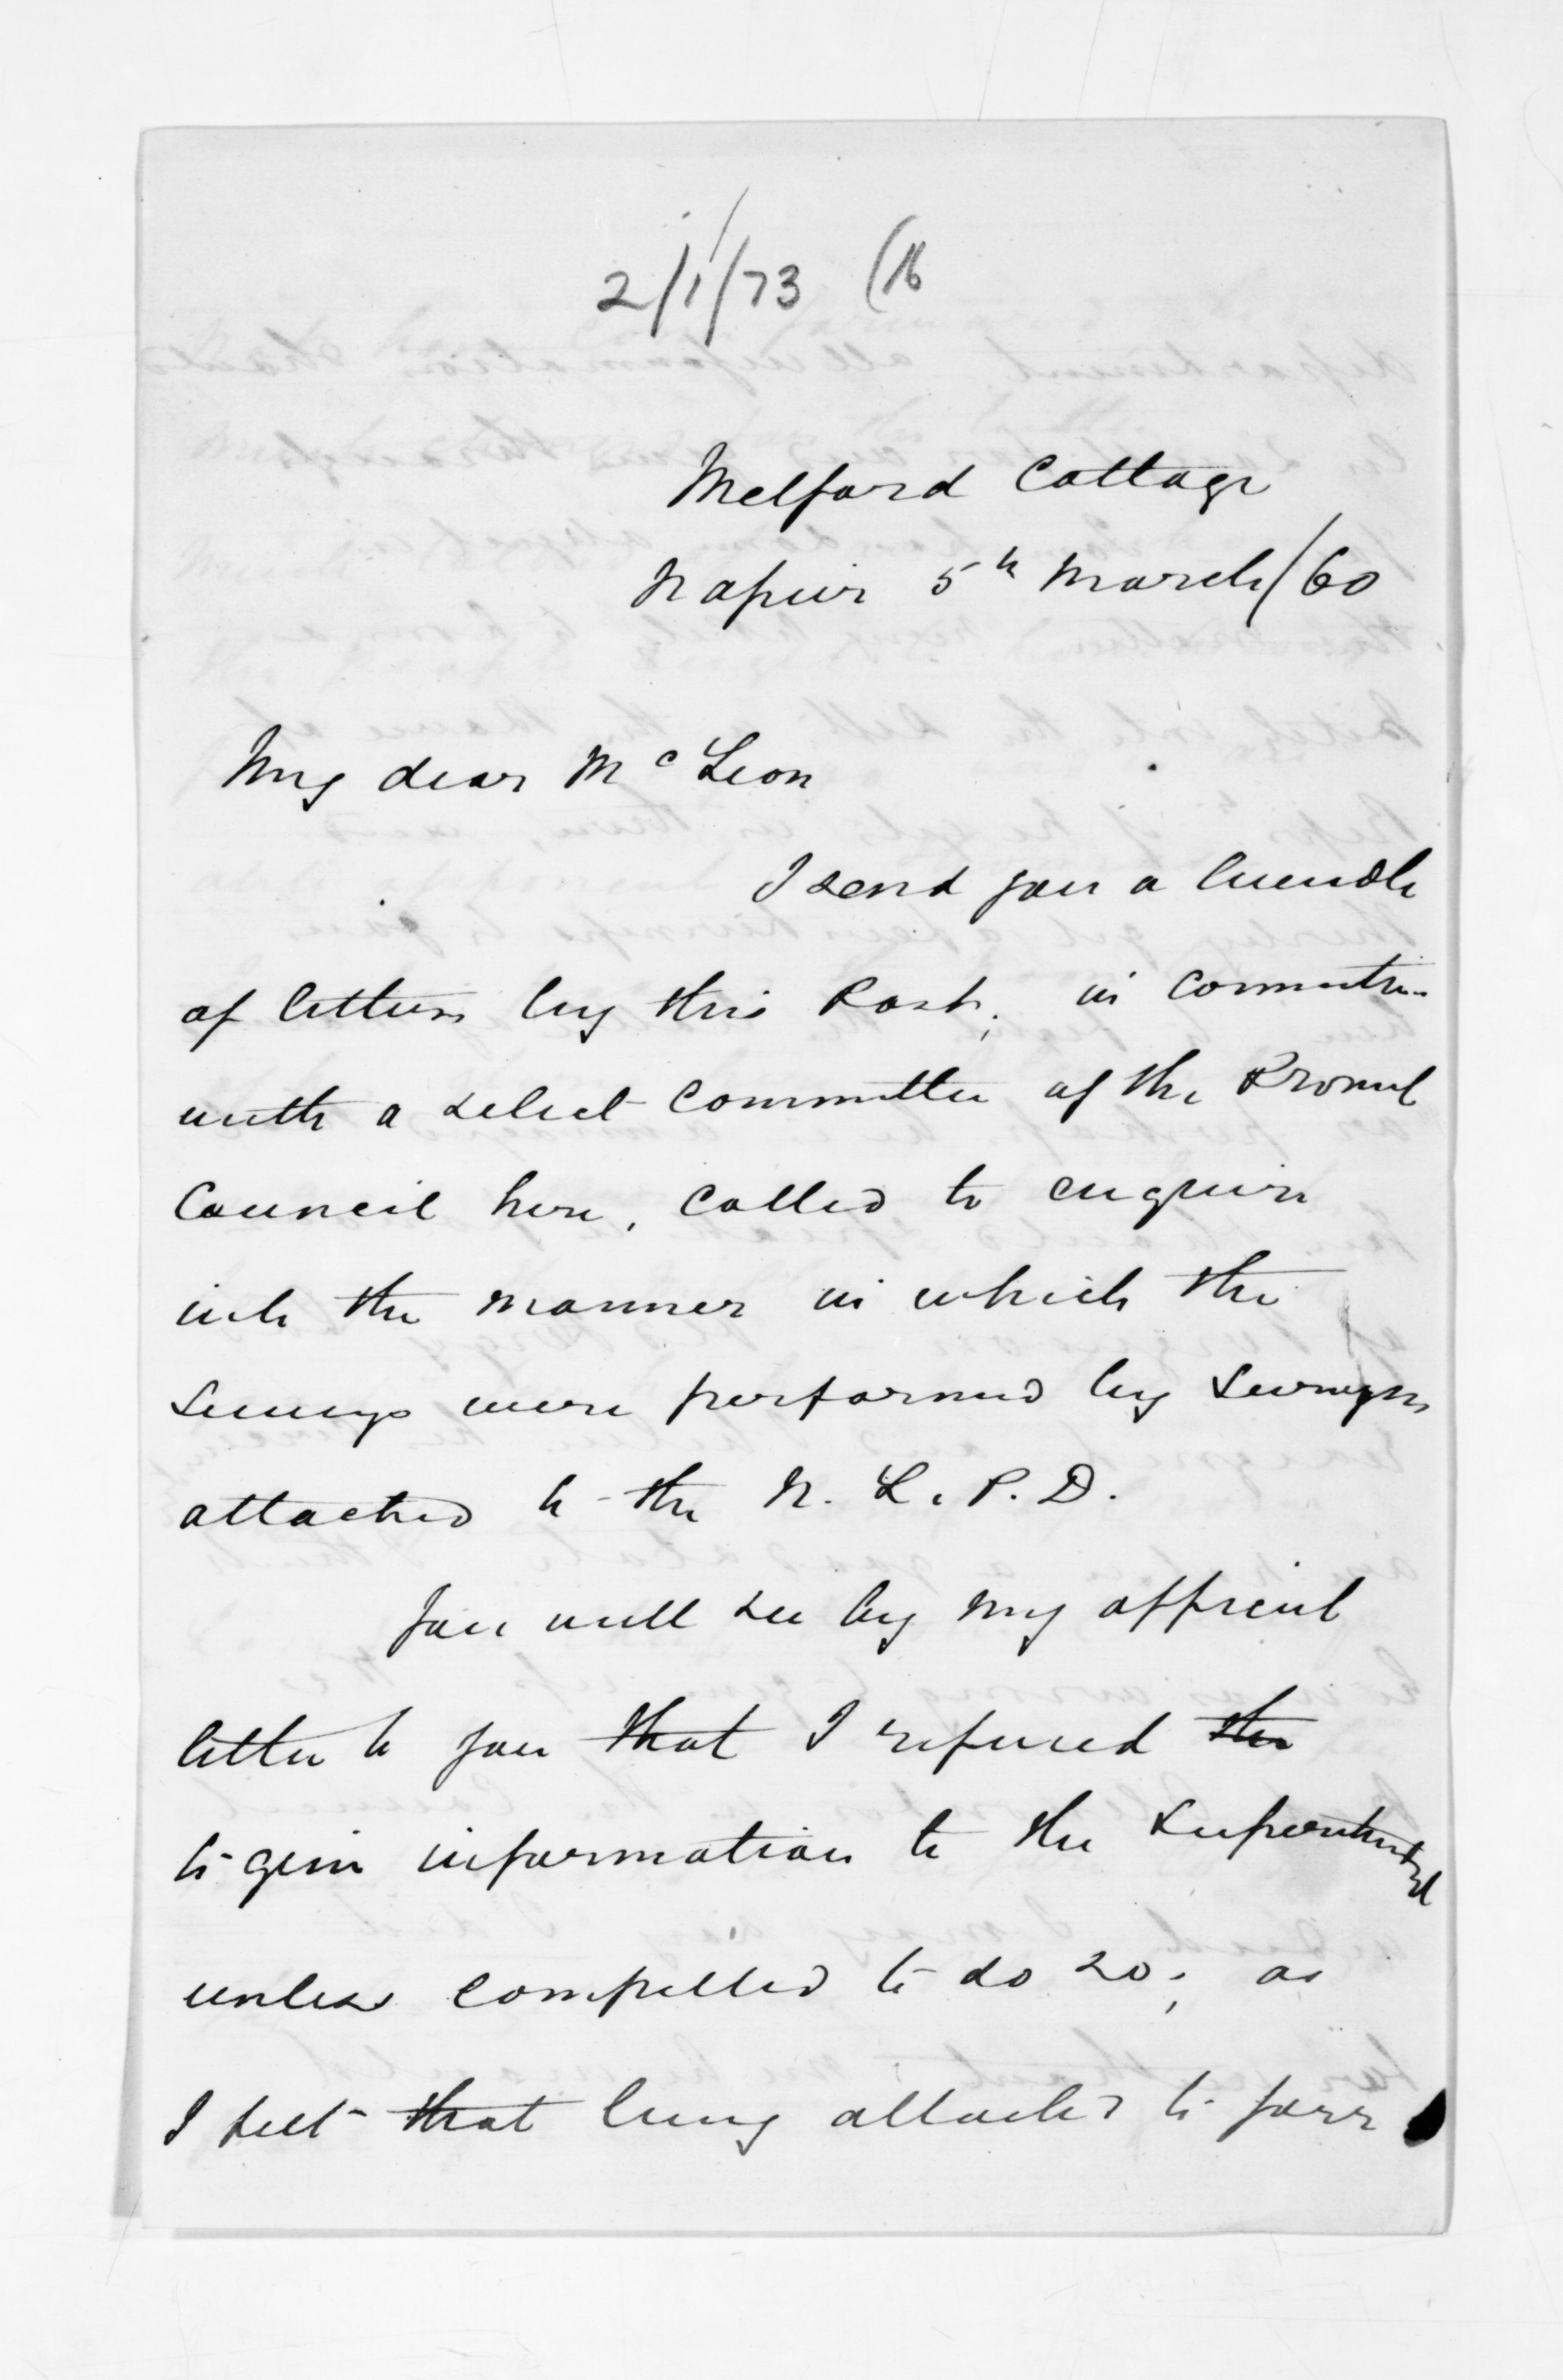 2/1/73 (16
Melford Cottage
Napier 5th March/60
My dear McLean
I send you a bundle
of letters by this Post; in connection
with a select Committee of the Provincl
Council here, called to enquire
into the manner in which the
Surveys were performed by Surveyors
attached to the N. L. P. D.
You will see by my official
letter to you that I refused the
to give information to the Superintendent
unless compelled to do so; as
I felt that being attached to your